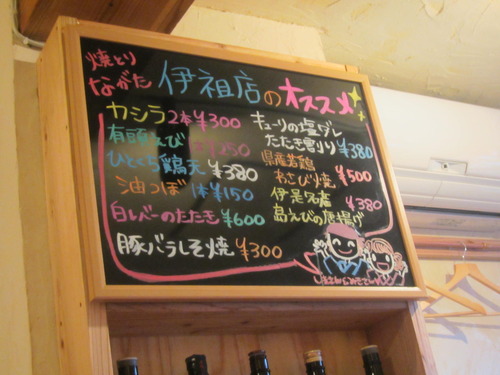 焼とり
ながた
伊祖店のオススメ
カシラ2本¥300
有頭えび ¥250
ひとくち鶏天 ¥380
油つぼ1本¥150
白レバーのたたき¥600
豚バラしそ焼 ¥300
キューリの塩ダレ
たたき割り ¥380
県産若鶏
わさび焼 ¥500
伊是名産
島えびの唐揚げ ¥380